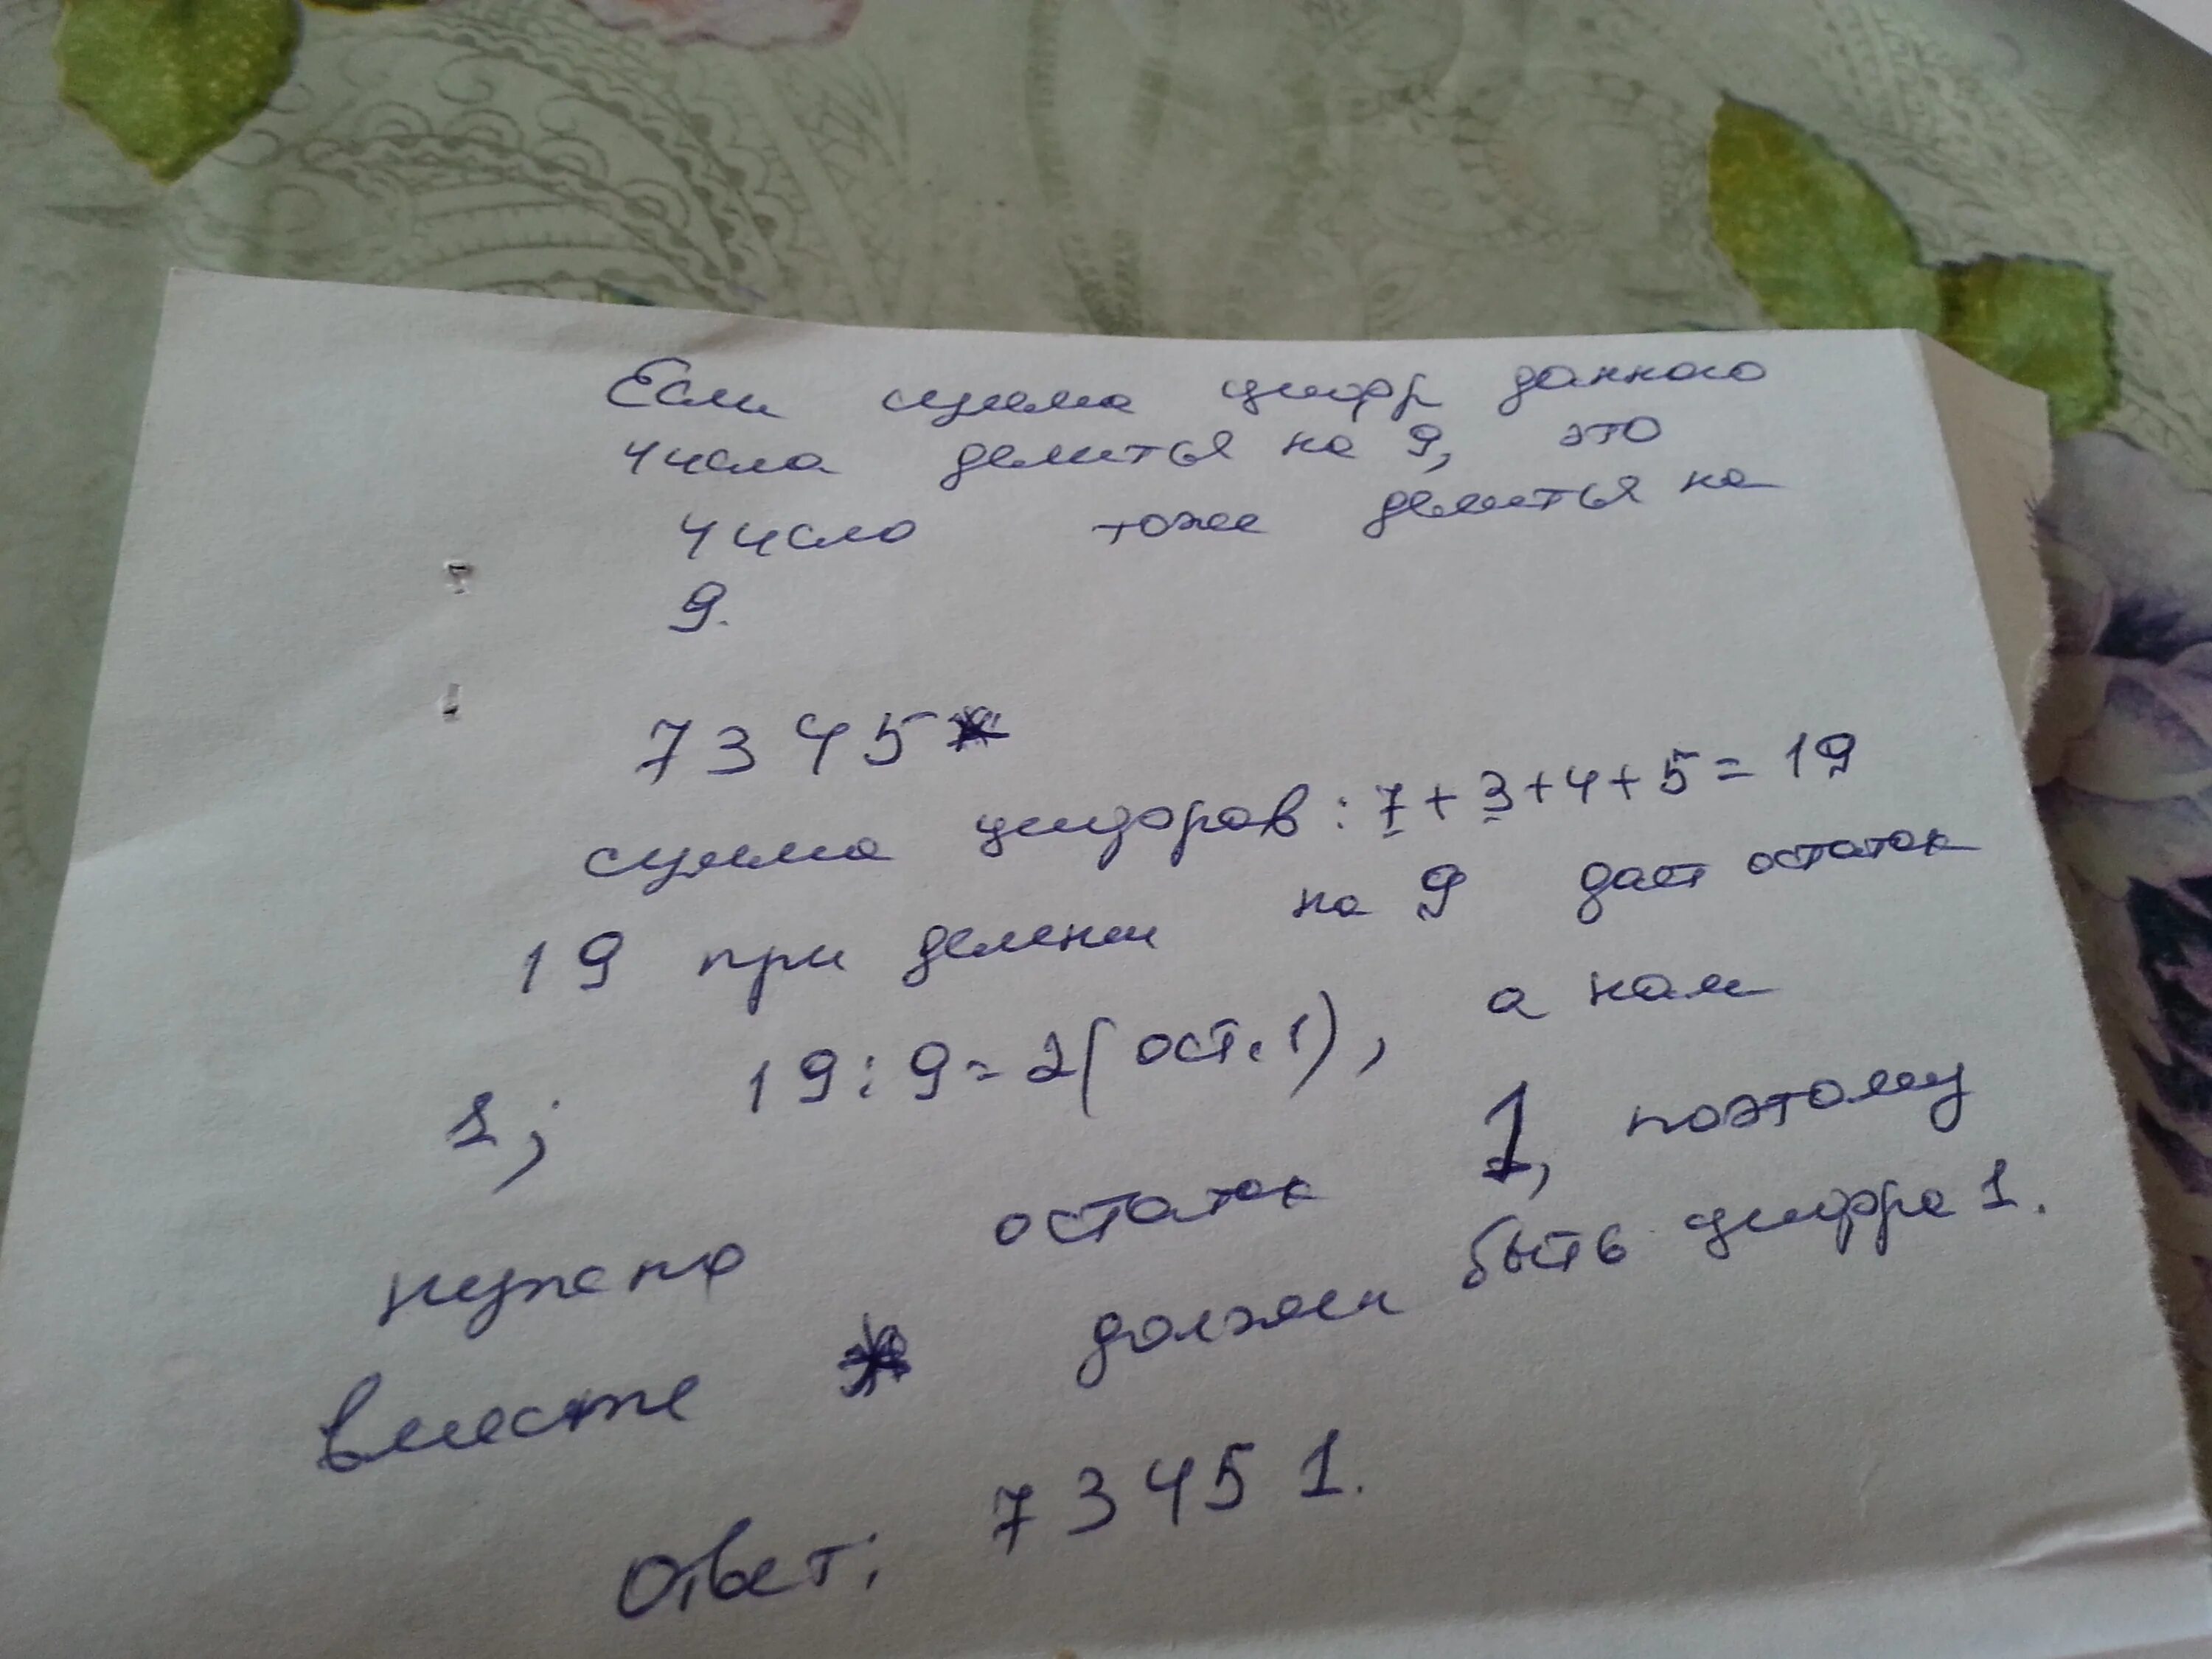 Если сумма цифр данного
числа делиться на 9, это
число тоже делиться на
9.
7345*
сумма цифоров: 7+3+4+5=19
19 при делени на 9 дает остаток
1; 19:9=2(ост.1), а нам
нужно остаток 1, поэтому
вместе * должен быть цифра 1.
Ответ: 73451.